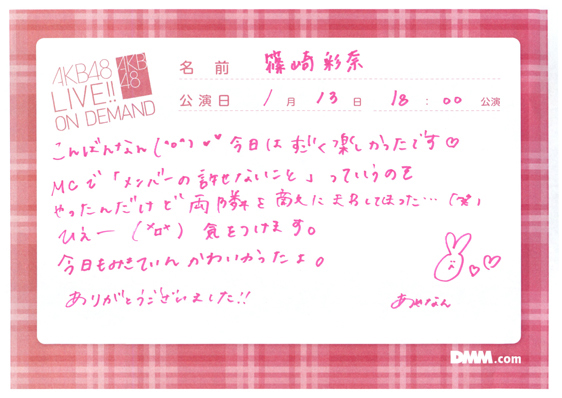 AKB48
LIVE!!
ON DEMAND
AKB
48
名前 篠崎彩奈
公演日 1月 13日 18:00 公演
こんばんなん(^o^)♡♥今日はすごく楽しかったです♡
MCで「メンバーの許せないこと」っていうのを
やったんだけど両隣を敵に
ひえー 気をつけます。
今日もみきてぃんかわいかったよ。
ありがとうございました!!
あやなん
DMM.com